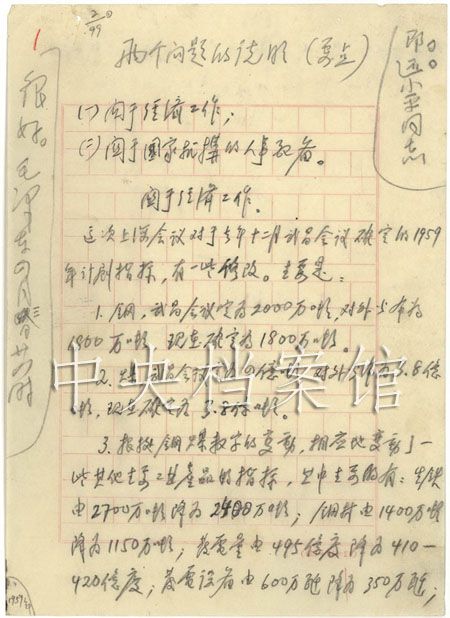 1
2/99
两个问题的说明（要点）
即送小平同志
很好。毛泽东 四月 廿时
㈠关于经济工作；
㈡关于国家机构的人事配备。
关于经济工作。
这次上海会议对于去年十二月武昌会议确定的1959
年计划指标，有一些修改。主要是：
1. 钢，武昌会议定为2000万吨，对外公布为
1800万吨，现在确定为1800万吨。
2. 煤 武昌会议 为 对外 3.8億
吨，现在确定为3.8 吨。
3. 根据钢煤数字的变动，相应地变动了一
些其他主要工业產品的指标，其中主要的有：生铁
由2700万吨降为2400万吨；钢材由1400万吨
降为1150万吨；發電量由495億度降为410—
420億度；發電设备由600万瓩降为350万瓩；
中央档案馆
1959年